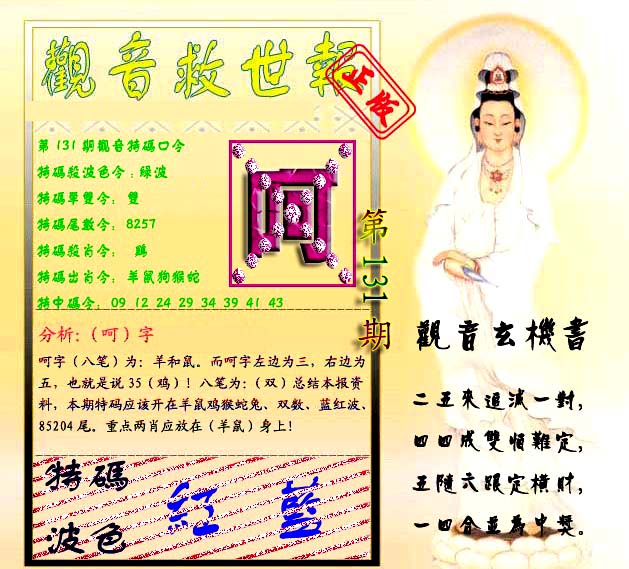 觀音救世報
正版
第131期觀音特碼口令
特碼殺波色令:綠波
特碼單雙令: 雙
特碼尾數令: 8257
特碼殺肖令: 鷄
特碼出肖令: 羊鼠狗猴蛇
特中碼令: 09 12 24 29 34 39 41 43
呵
第131期
分析:(呵)字
呵字(八笔)为:羊和鼠。而呵字左边为三,右边为
五,也就是说35(鸡)!八笔为:(双)总结本报资
料,本期特码应该开在羊鼠鸡猴蛇兔、双数、蓝红波、
85204尾。重点两肖应放在(羊鼠)身上!
特碼
波色
紅 藍
觀音玄機書
二五來追減一對,
四四成雙悄難定,
五隨六跟定橫財,
一四合並為中獎。